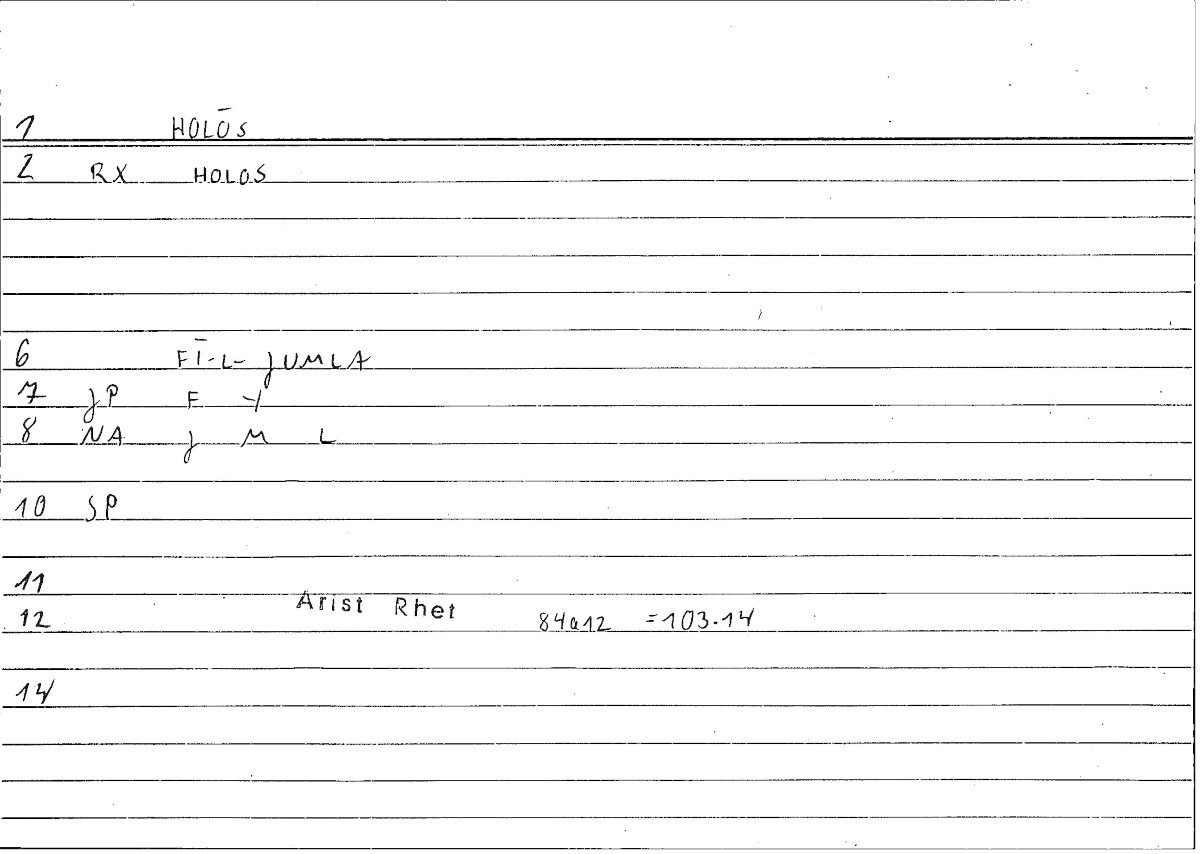 1 HOLŌS
2 RX HOLOS
6 FĪ-L-JUMLA
7 JP F Y
8 NA J M L
10 SP
11
12 Arist Rhet 84a12 =103.14
14